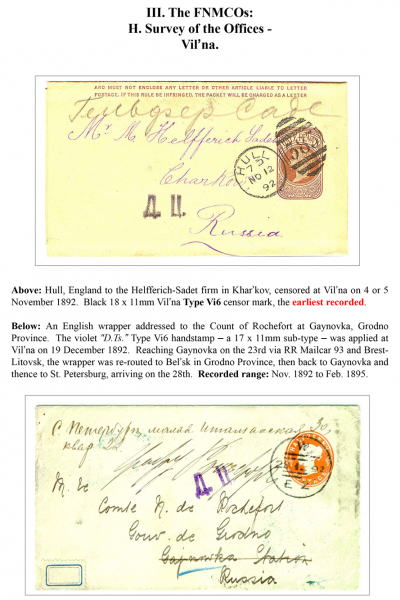 III. The FNMCOs:
H. Survey of the Offices -
Vil'na.
AND MUST NOT ENCLOSE ANY LETTER OR OTHER ARTICLE LIABLE TO LETTER
POSTAGE. IF THIS RULE BE INFRINGED, THE PACKET WILL BE CHARGED AS A LETTER
Mr. M Helfferich Sade
Charkow
Russia
HULL
NO 12
92
Д. Ц.
Above: Hull, England to the Helfferich-Sadet firm in Khar'kov, censored at Vil'na on 4 or 5
November 1892. Black 18 x 11mm Vil'na Type Vi6 censor mark, the earliest recorded.
Below: An English wrapper addressed to the Count of Rochefort at Gaynovka, Grodno
Province. The violet "D.Ts." Type Vi6 handstamp – a 17 x 11mm sub-type – was applied at
Vil'na on 19 December 1892. Reaching Gaynovka on the 23rd via RR Mailcar 93 and Brest-
Litovsk, the wrapper was re-routed to Bel'sk in Grodno Province, then back to Gaynovka and
thence to St. Petersburg, arriving on the 28th. Recorded range: Nov. 1892 to Feb. 1895.
С. Петербург малая Итальянская
Д. Ц.
92
M. le
Comte N. de Rochefort
Gouv. de Grodno
Gajnowka Station
Russia